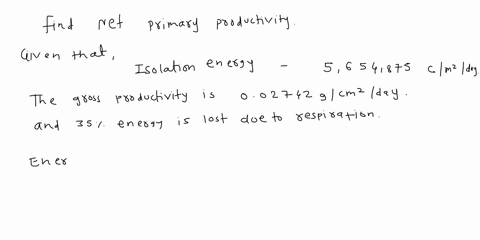 find net primary productivity.
Given that,
Isolation energy - 5,654,875 C/m²/day
The gross productivity is 0.02742 g/cm²/day.
and 35% energy is lost due to respiration.
Ener